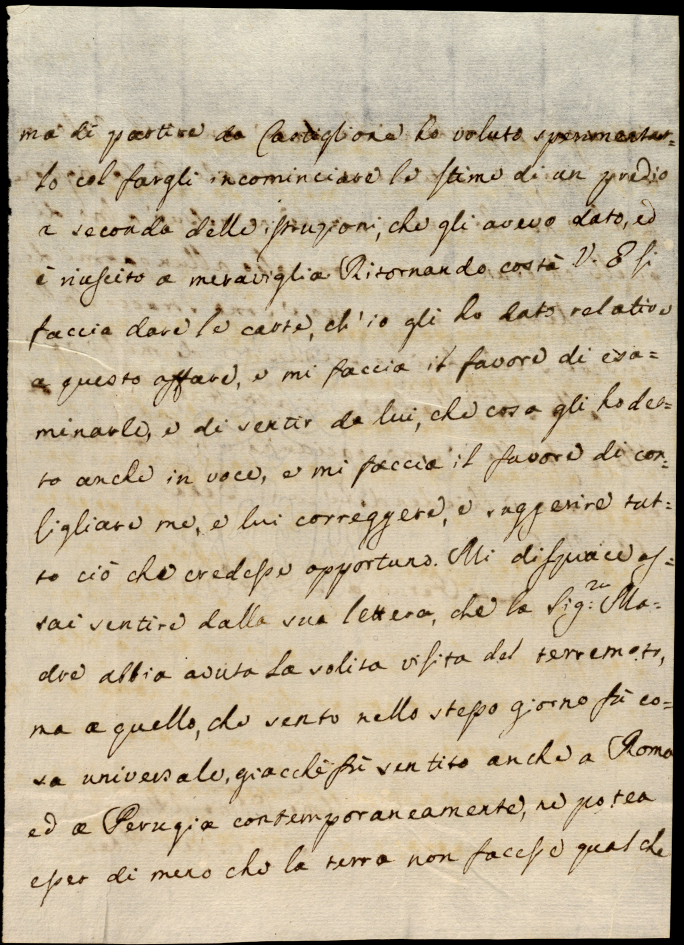 ma di partire da Castiglione ho voluto sperimentar=
lo col fargli incominciare le stime di un predio
a seconda delle istruzioni, che gli avevo dato, ed
è riuscito a meraviglia. Ritornando costà V. E. si
faccia dare le carte, ch'io gli ho dato relative
a questo affare, e mi faccia il favore di esa=
minarle, e di sentir da lui, che cosa gli ho det=
to anche in voce, e mi faccia il favore di con=
sigliare me, e lui correggere, e suggerire tut=
to ciò che credesse opportuno. Mi dispiace as=
sai sentire dalla sua lettera, che la Sig:ra Ma=
dre abbia avuta la solita visita del terremoto,
ma a quello, che sento nello stesso giorno fù co=
sa universale, giacchè fù sentito anche a Roma
ed a Perugia contemporaneamente, ne potea
esser di meno che la terra non facesse qualche